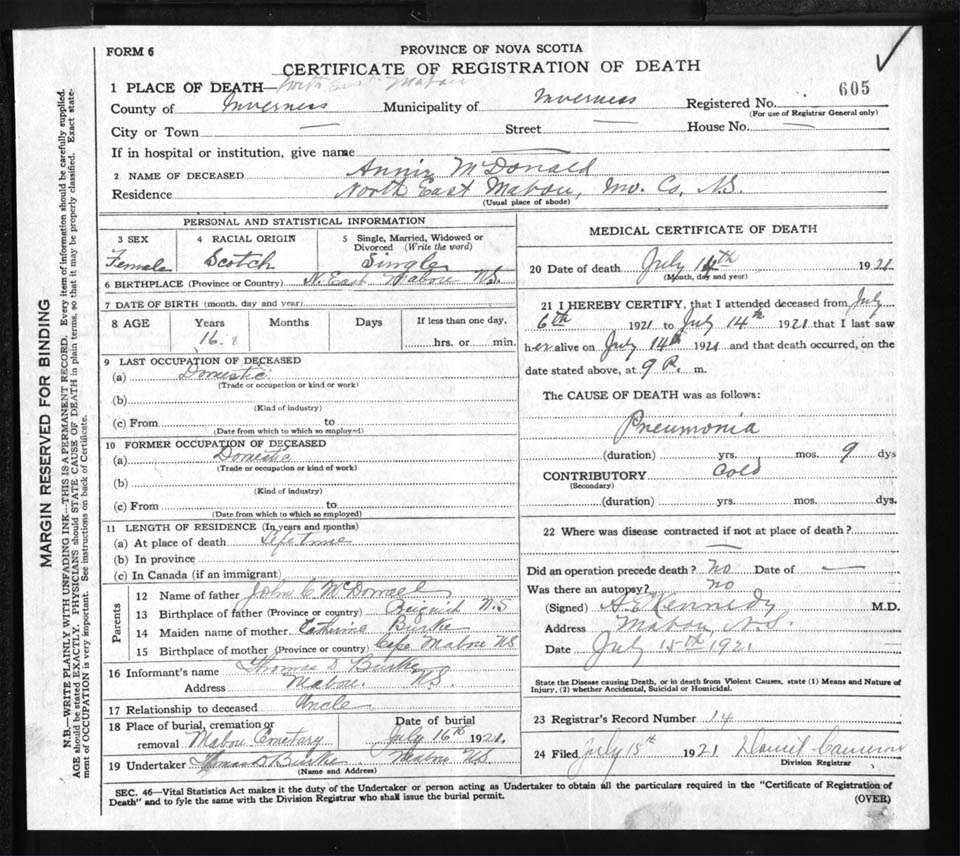 FORM 6
PROVINCE OF NOVA SCOTIA
CERTIFICATE OF REGISTRATION OF DEATH
1 PLACE OF DEATH— North East Mabou
County of Inverness Municipality of Inverness Registered No. 605
(For use of Registrar General only)
City or Town — Street — House No. —
If in hospital or institution, give name —
2 NAME OF DECEASED Annie McDonald
Residence North East Mabou, Inv. Co. N.S.
(Usual place of abode)
PERSONAL AND STATISTICAL INFORMATION
3 SEX 4 RACIAL ORIGIN 5 Single, Married, Widowed or
Divorced (Write the word)
Female Scotch Single
6 BIRTHPLACE (Province or Country) N. East Mabou N.S.
7 DATE OF BIRTH (month, day and year)
8 AGE Years Months Days If less than one day,
16 hrs. or min.
9 LAST OCCUPATION OF DECEASED
(a) Domestic
(Trade or occupation or kind or work)
(b)
(Kind of industry)
(c) From to
(Date from which to which so employed)
10 FORMER OCCUPATION OF DECEASED
(a) Domestic
(Trade or occupation or kind or work)
(b)
(Kind of industry)
(c) From to
(Date from which to which so employed)
11 LENGTH OF RESIDENCE (In years and months)
(a) At place of death Lifetime
(b) In province
(c) In Canada (if an immigrant)
Parents
12 Name of father John C McDonald
13 Birthplace of father (Province or country) N.S
14 Maiden name of mother Burke
15 Birthplace of mother (Province or country) Cape Mabou NS
16 Informant's name Thomas D Burke
Address Mabou N.S.
17 Relationship to deceased Uncle
18 Place of burial, cremation or Date of burial
removal Mabou Cemetary July 16th 1921.
19 Undertaker Thomas D Burke Mabou N.S.
(Name and Address)
MEDICAL CERTIFICATE OF DEATH
20 Date of death July 14th 1921
(Month, day and year)
21 I HEREBY CERTIFY, that I attended deceased from July
6th 1921 to July 14th 1921 that I last saw
her alive on July 14th 1921 and that death occurred, on the
date stated above, at 9 P. m.
The CAUSE OF DEATH was as follows:
Pneumonia
(duration) yrs. mos. 9 dys
CONTRIBUTORY Cold
(Secondary)
(duration) yrs. mos. dys.
22 Where was disease contracted if not at place of death?
—
Did an operation precede death? no Date of —
Was there an autopsy? no
(Signed) A E Kennedy M.D.
Address Mabou, N.S.
Date July 15th 1921
State the Disease causing Death, or in death from Violent Causes, state (1) Means and Nature of
Injury, (2) whether Accidental, Suicidal or Homicidal.
23 Registrar's Record Number 14
24 Filed July 15th 1921 Cameron
Division Registrar
SEC. 46—Vital Statistics Act makes it the duty of the Undertaker or person acting as Undertaker to obtain all the particulars required in the "Certificate of Registration of
Death" and to fyle the same with the Division Registrar who shall issue the burial permit.
(OVER)
MARGIN RESERVED FOR BINDING
N.B.—WRITE PLAINLY WITH UNFADING INK—THIS IS A PERMANENT RECORD. Every item of information should be carefully supplied.
AGE should be stated EXACTLY. PHYSICIANS should STATE CAUSE OF DEATH in plain terms, so that it may be properly classified. Exact state-
ment of OCCUPATION is very important. See instructions on back of Certificate.